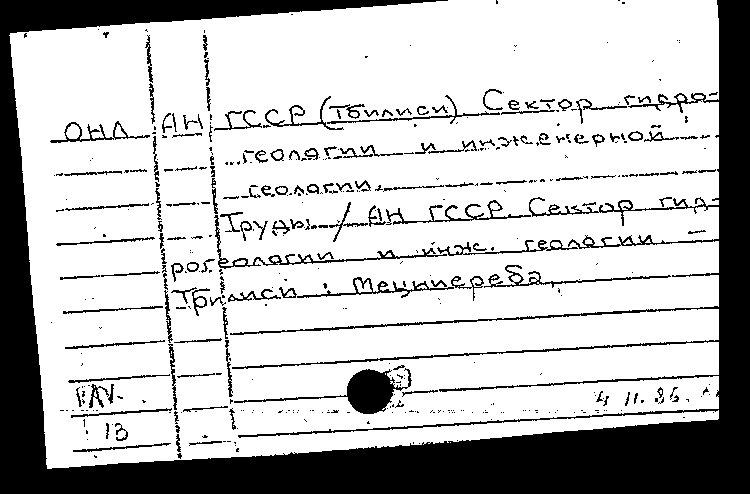 ОНЛ АН ГССР (Тбилиси). Сектор гидро-
геологии и инженерной
геологии.
Труды / АН ГССР. Сектор гид-
рогеологии и инж. геологии. –
Тбилиси : Мецниереба,
4 11. 86.
13